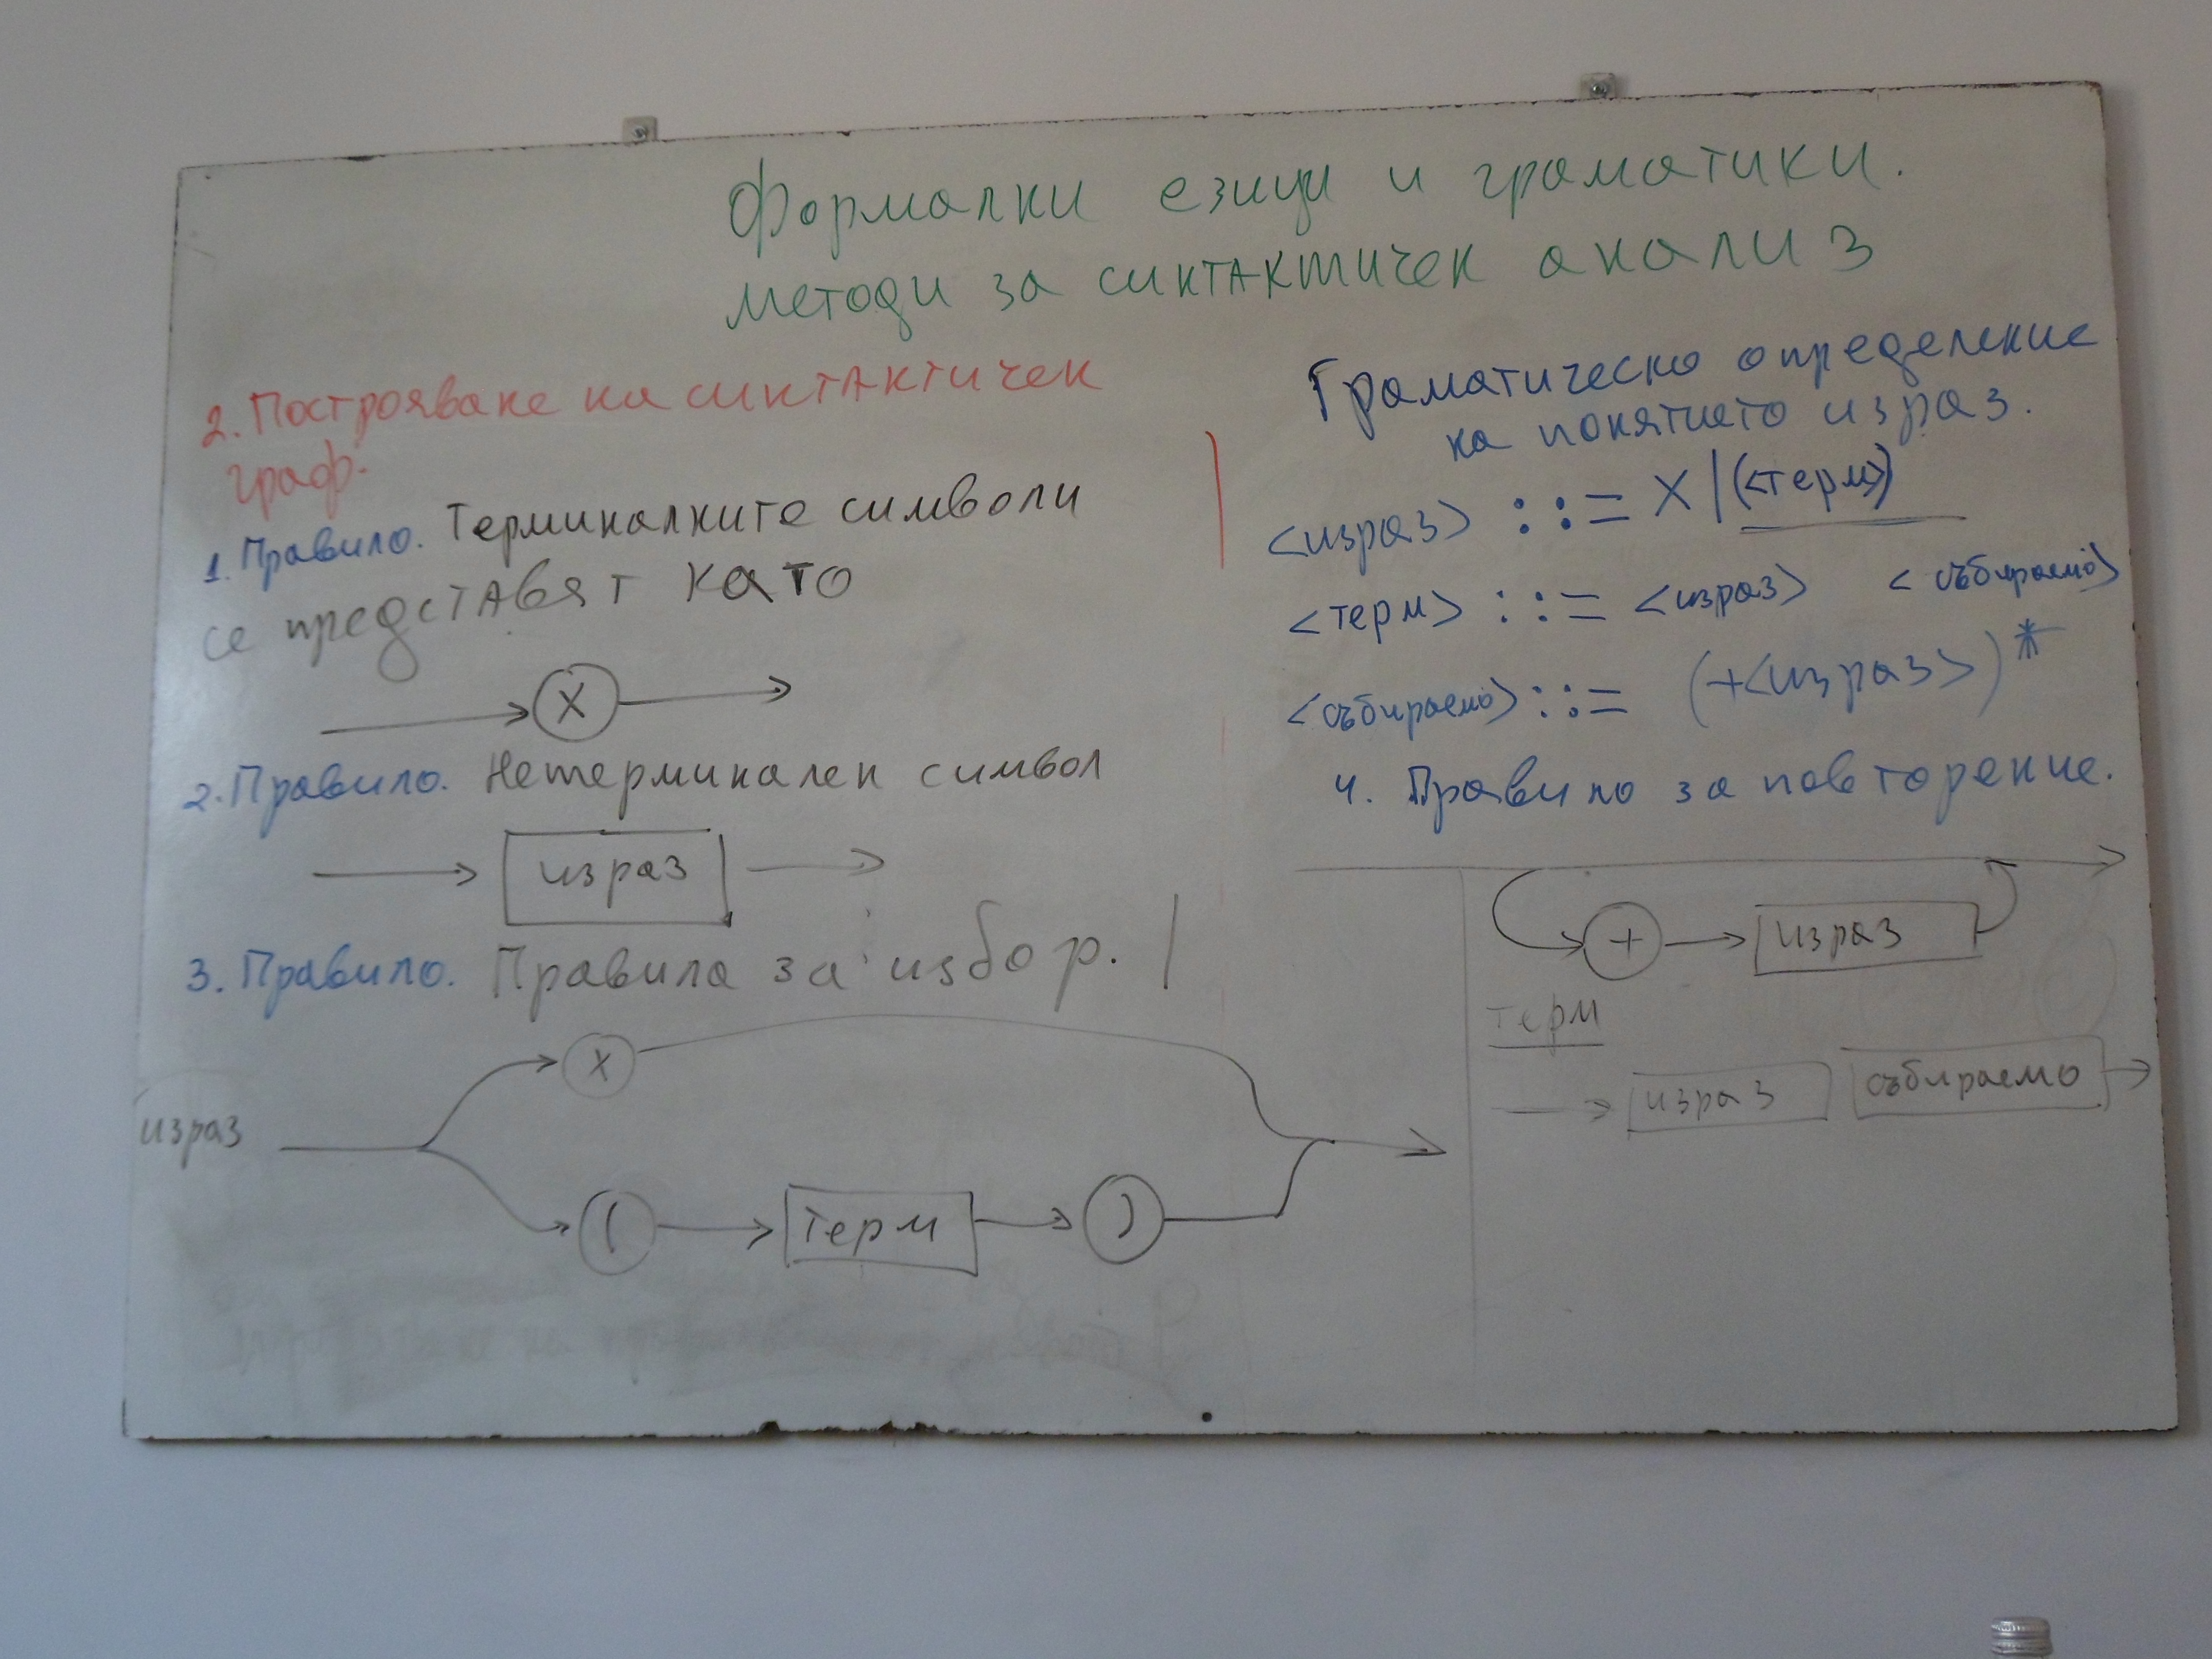 Формални езици и граматики.
методи за синтактичен анализ
2. Построяване на синтактичен
граф.
1. Правило. Терминалните символи
се представят като
X
2. Правило. Нетерминален символ
израз
3. Правило. Правила за избор. |
X
израз
( терм )
Граматическо определение
на понятието израз.
<израз> ::= X | (<терм>)
<терм> ::= <израз> <събираемо>
<събираемо> ::= (+<израз>)*
4. Правило за повторение.
+ израз
терм
израз събираемо